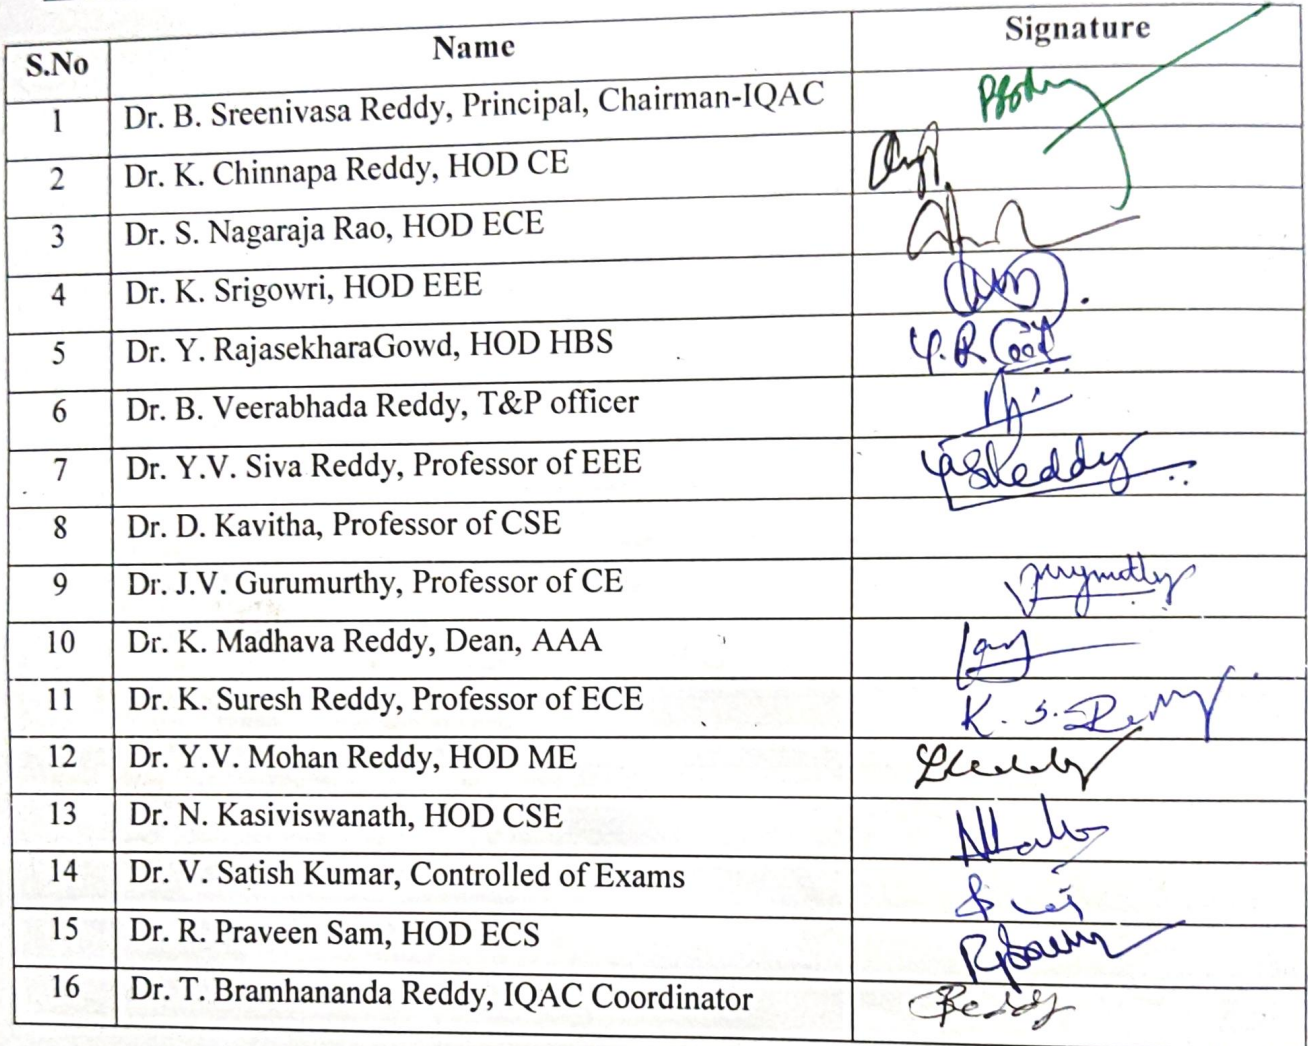 S.No Name Signature
1 Dr. B. Sreenivasa Reddy, Principal, Chairman-IQAC
2 Dr. K. Chinnapa Reddy, HOD CE
3 Dr. S. Nagaraja Rao, HOD ECE
4 Dr. K. Srigowri, HOD EEE
5 Dr. Y. RajasekharaGowd, HOD HBS
6 Dr. B. Veerabhada Reddy, T&P officer
7 Dr. Y.V. Siva Reddy, Professor of EEE
8 Dr. D. Kavitha, Professor of CSE
9 Dr. J.V. Gurumurthy, Professor of CE
10 Dr. K. Madhava Reddy, Dean, AAA
11 Dr. K. Suresh Reddy, Professor of ECE K. S. Reddy
12 Dr. Y.V. Mohan Reddy, HOD ME
13 Dr. N. Kasiviswanath, HOD CSE
14 Dr. V. Satish Kumar, Controlled of Exams
15 Dr. R. Praveen Sam, HOD ECS
16 Dr. T. Bramhananda Reddy, IQAC Coordinator